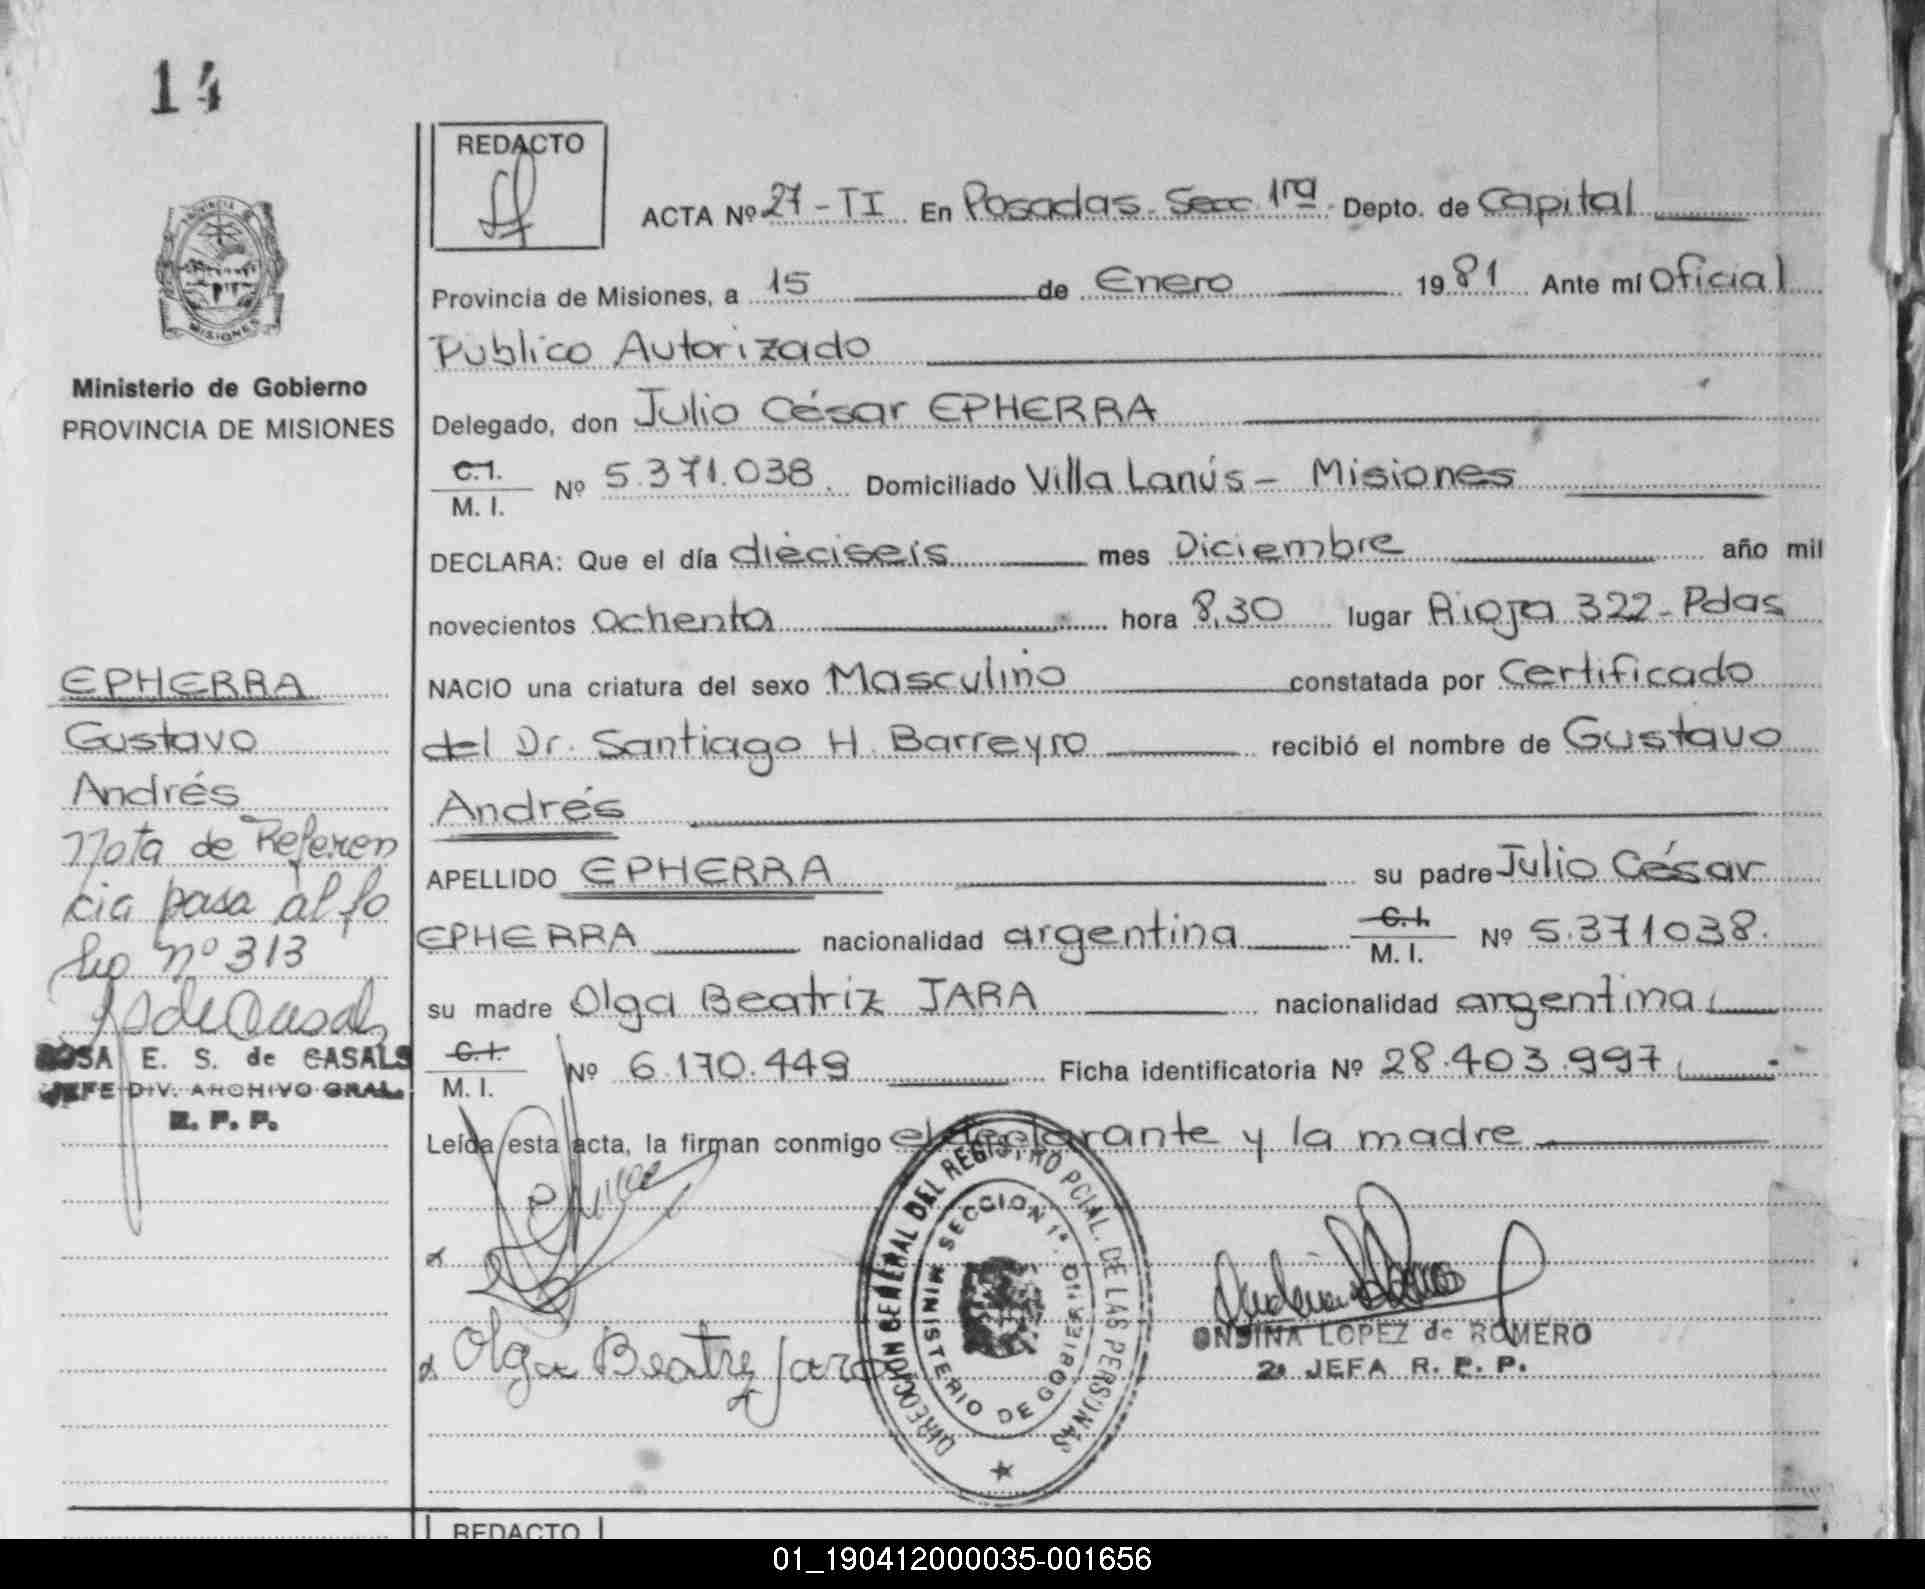 14
REDACTO
ACTA Nº 27-TI En Posadas. Secc 1ra. Depto. de Capital
Provincia de Misiones, a 15 de Enero 1981 Ante mí Oficial
Publico Autorizado
Delegado, don Julio César EPHERRA
C.I.
M. I. Nº 5.371.038. Domiciliado Villa Lanús - Misiones
DECLARA: Que el día dieciseis mes Diciembre año mil
novecientos ochenta hora 8,30 lugar Rioja 322 - Pdas
NACIO una criatura del sexo Masculino constatada por Certificado
del Dr. Santiago H. Barreyro recibió el nombre de Gustavo
Andrés
APELLIDO EPHERRA su padre Julio César
EPHERRA nacionalidad argentina C.I. M. I. Nº 5.371038.
su madre Olga Beatriz JARA nacionalidad argentina
C.I.
M. I. Nº 6.170.449 Ficha identificatoria Nº 28.403.997
Leída esta acta, la firman conmigo el declarante y la madre
Olga Beatriz Jara
DIRECCION GENERAL DEL REGISTRO PCIAL. DE LAS PERSONAS
SECCION 1ª.
MINISTERIO DE GOBIERNO
ONDINA LOPEZ de ROMERO
2ª JEFA R. P. P.
PROVINCIA DE
MISIONES
Ministerio de Gobierno
PROVINCIA DE MISIONES
EPHERRA
Gustavo
Andrés
Nota de Referen
cia pasa al fo
lio nº 313
RsdeCasals
ROSA E. S. de CASALS
JEFE DIV. ARCHIVO GRAL.
R. P. P.
REDACTO
01_190412000035-001656